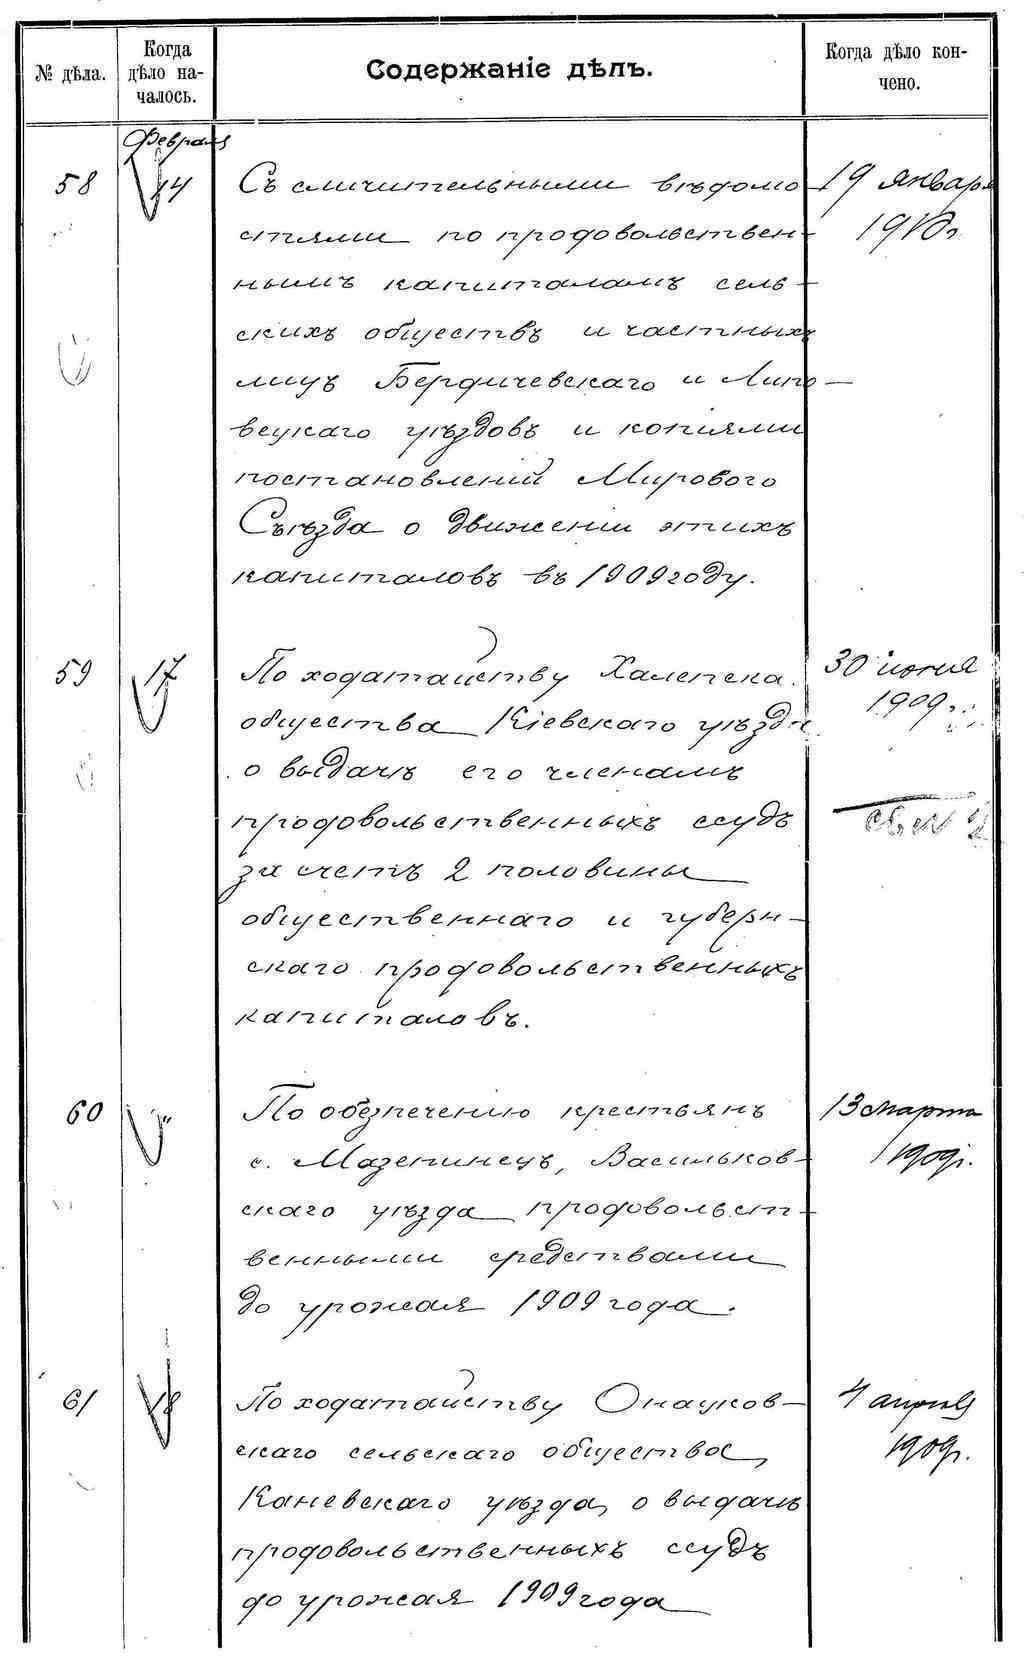 № дѣла.
Когда
дѣло на-
чалось.
Содержаніе дѣлъ.
Когда дѣло кон-
чено.
Февраля
58
14
Съ сличительными вѣдомо-
стями по продовольствен-
нымъ капиталамъ сель-
скихъ обществъ и частныхъ
лицъ Бердичевскаго и Липо-
вецкаго уѣздовъ и копіями
постановленій Мирового
Съѣзда о движеніи этихъ
капиталовъ въ 1909 году.
19 января
1910 г.
59
17
По ходатайству Халепска.
общества Кіевскаго уѣзда
о выдачѣ его членамъ
продовольственныхъ ссудъ
за счетъ 2 половины
общественнаго и губерн-
скаго продовольственныхъ
капиталовъ.
30 іюня
1909 г.
60
"
По обезпеченію крестьянъ
с. Мазепинецъ, Васильков-
скаго уѣзда продовольст-
венными средствами
до урожая 1909 года.
13 марта
1909 г.
61
18
По ходатайству
скаго сельскаго общества,
Каневскаго уѣзда, о выдачѣ
продовольственныхъ ссудъ
до урожая 1909 года
4 апреля
1909 г.